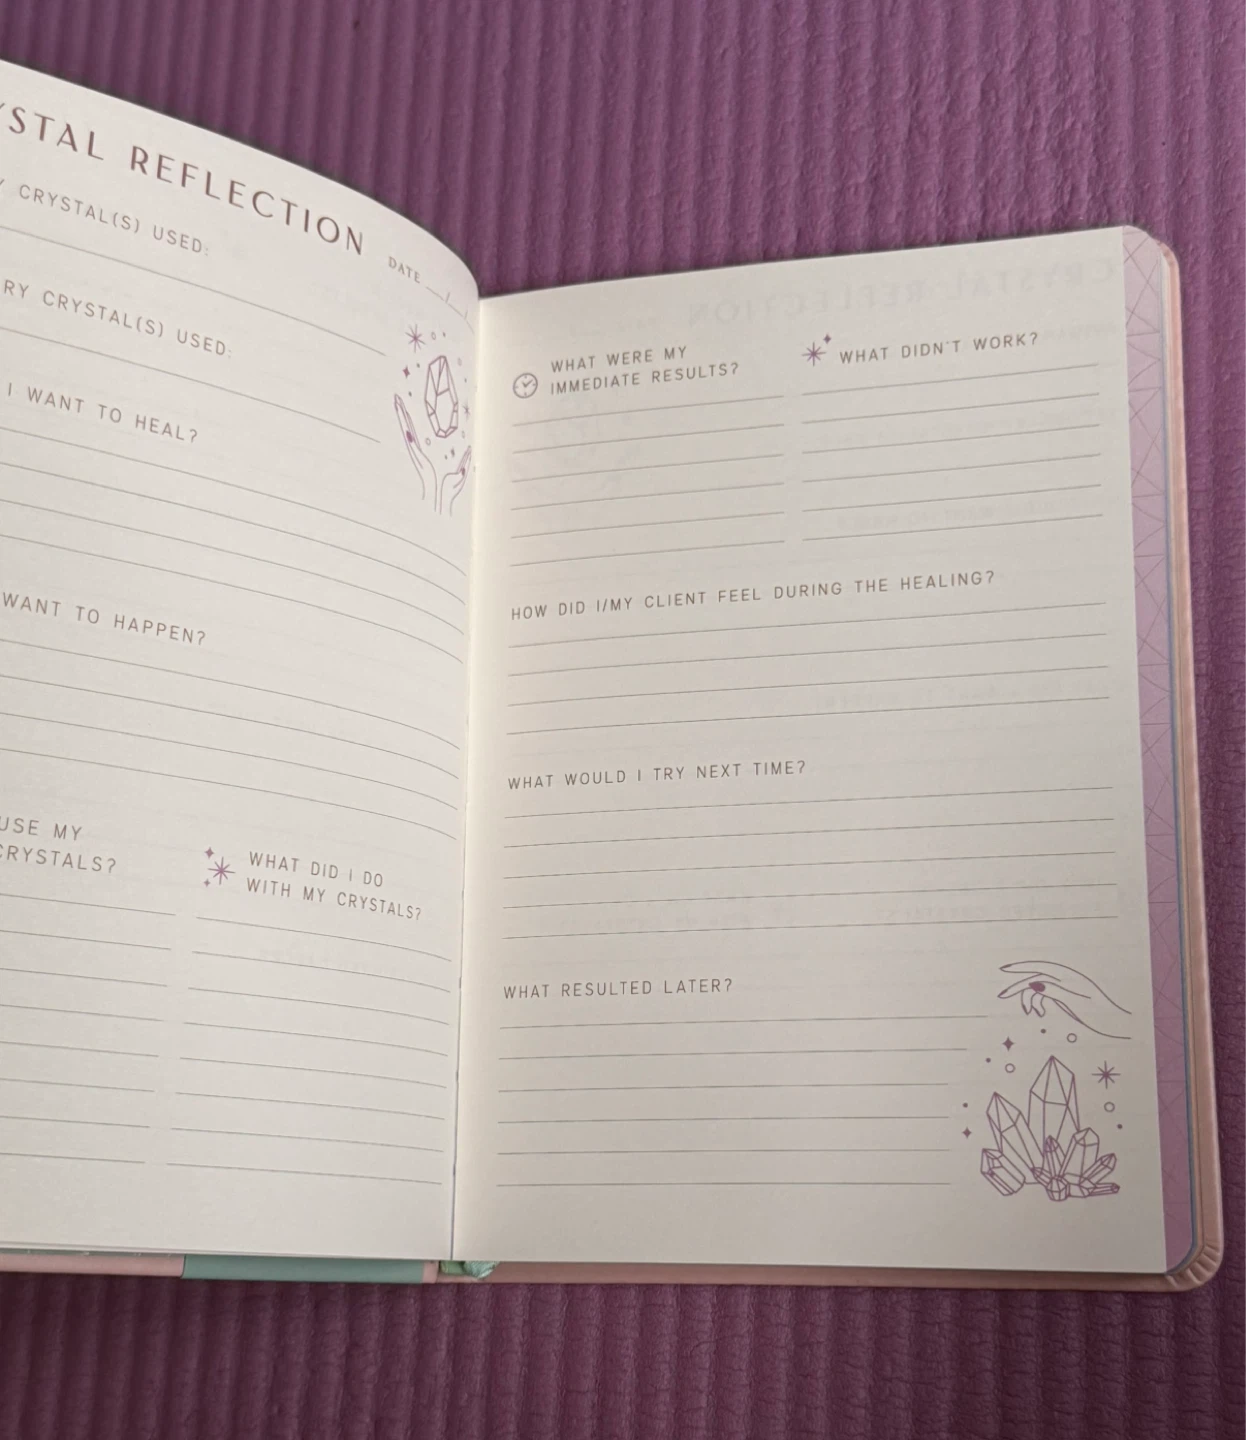 STAL REFLECTION
DATE __/__
CRYSTAL(S) USED:
RY CRYSTAL(S) USED:
I WANT TO HEAL?
WANT TO HAPPEN?
USE MY
CRYSTALS?
WHAT DID I DO
WITH MY CRYSTALS?
WHAT WERE MY
IMMEDIATE RESULTS?
WHAT DIDN'T WORK?
HOW DID I/MY CLIENT FEEL DURING THE HEALING?
WHAT WOULD I TRY NEXT TIME?
WHAT RESULTED LATER?